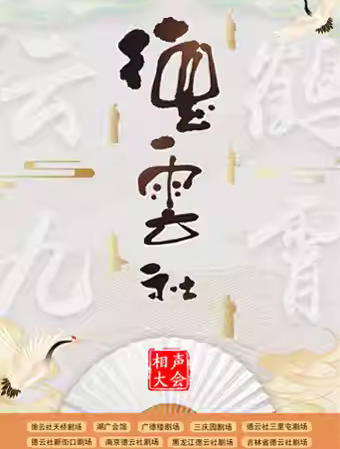 德雲社
云鹤
九霄
相声
大会
德云社天桥剧场 湖广会馆 广德楼剧场 三庆园剧场 德云社三里屯剧场
德云社新街口剧场 南京德云社剧场 黑龙江德云社剧场 吉林省德云社剧场